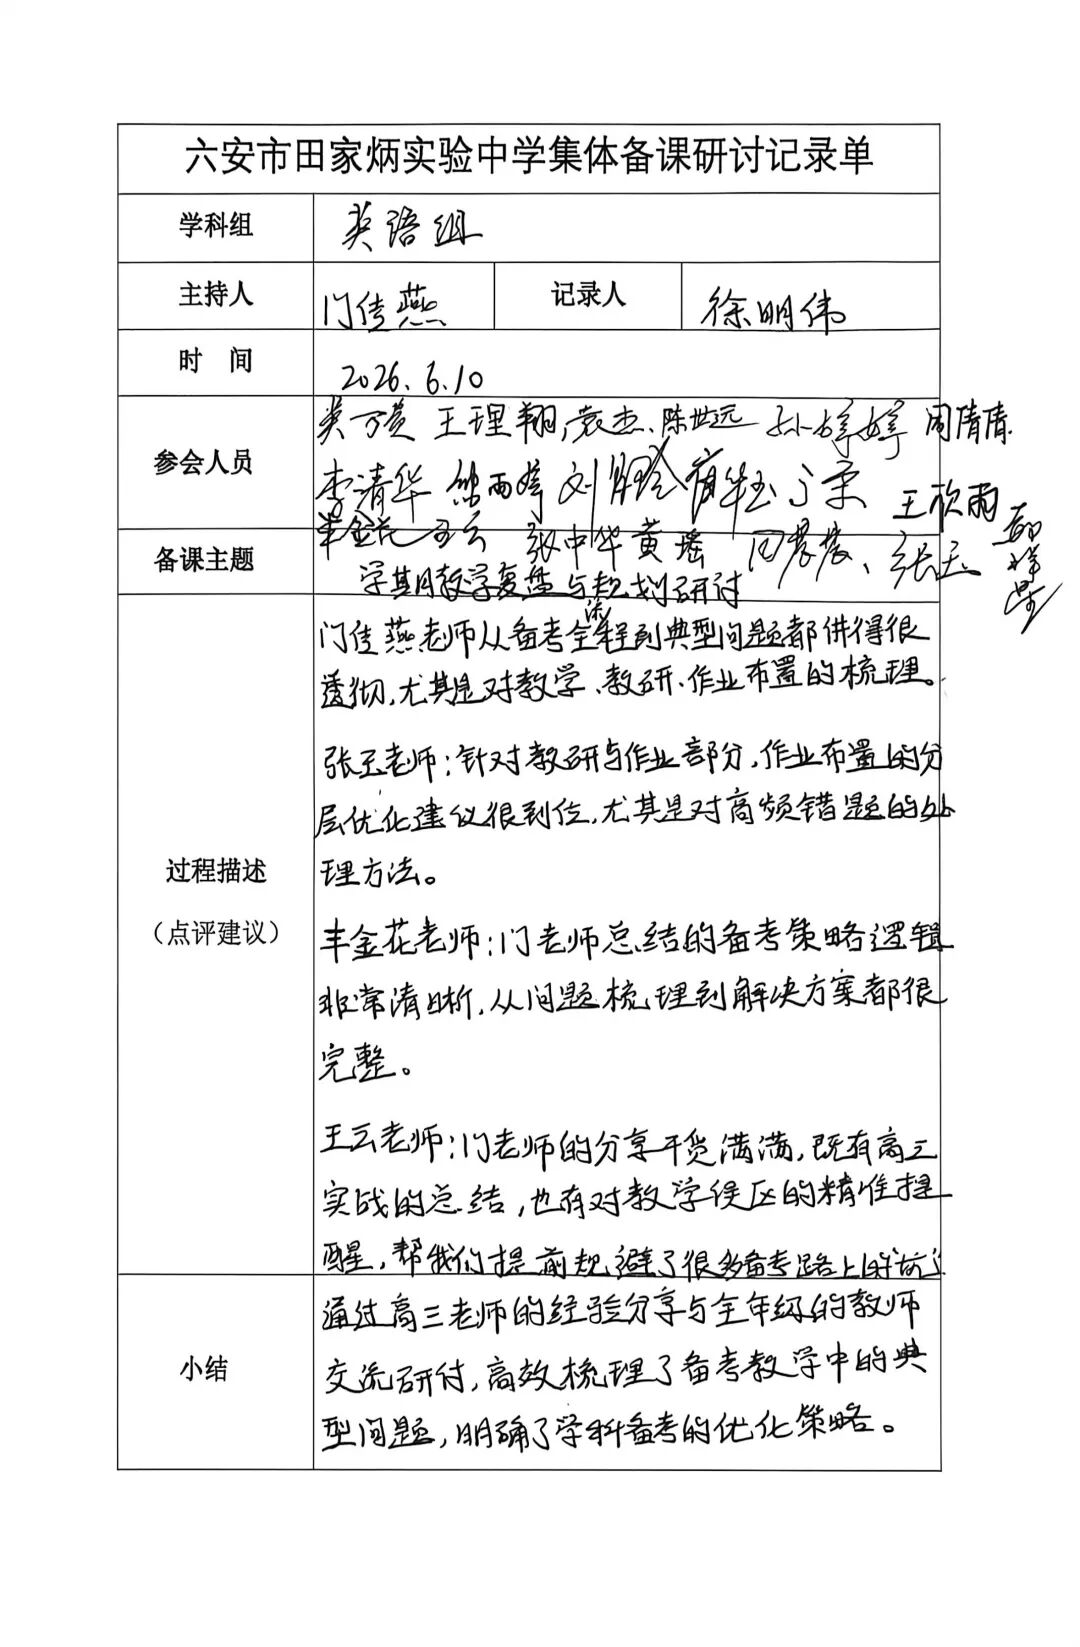 六安市田家炳实验中学集体备课研讨记录单
学科组 英语组
主持人 门佳燕 记录人 徐明伟
时 间 2026.6.10
参会人员
王理翔、袁杰、陈世远 孙婷婷 周倩倩
李清华 熊雨婷 刘 丁柔 王欣雨
丰金花 王云 张中华 黄瑶 张玉
备课主题
学期教学复盘与规划研讨
过程描述
(点评建议)
门佳燕老师从备考全流程到典型问题都讲得很
透彻,尤其是对教学、教研、作业布置的梳理。
张玉老师:针对教研与作业部分,作业布置的分
层优化建议很到位,尤其是对高频错题的处
理方法。
丰金花老师:门老师总结的备考策略逻辑
非常清晰,从问题梳理到解决方案都很
完整。
王云老师:门老师的分享干货满满,既有高三
实战的总结,也有对教学误区的精准提
醒,帮我们提前规避了很多备考路上的坑。
小结
通过高三老师的经验分享与全年级的教师
交流研讨,高效梳理了备考教学中的典
型问题,明确了学科备考的优化策略。